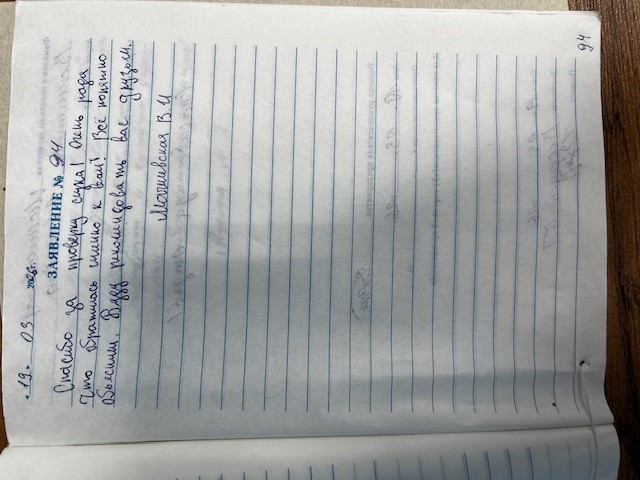 «19» 03 2025г.
ЗАЯВЛЕНИЕ № 94
Спасибо за проверку слуха! Очень рада
что обратилась именно к вам! Всё понятно
объяснили. Буду рекомендовать вас друзьям.
В.И
94